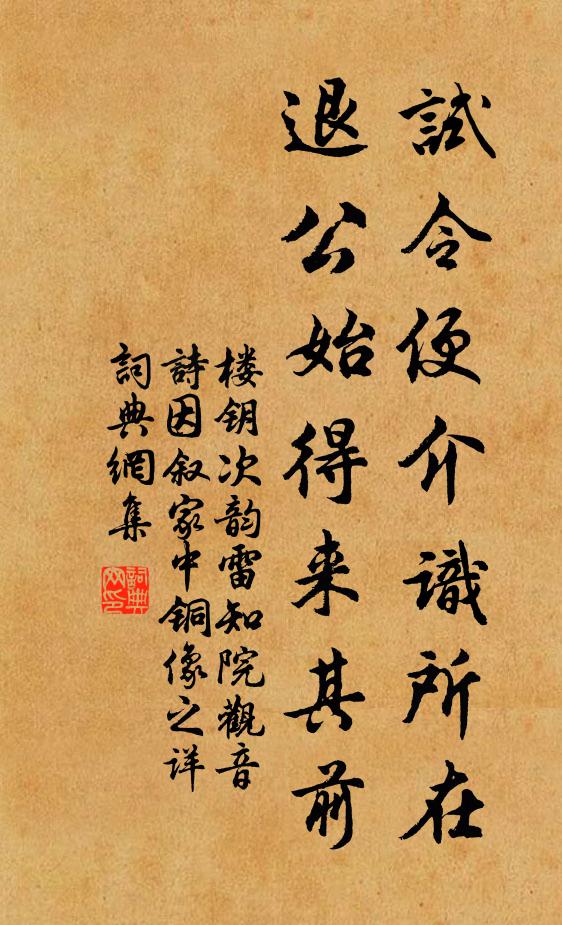 試令便介識所在
退公始得来其前
楼钥次韵雷知院觀音
詩因叙家中铜像之详
詞典網集
詞典网印